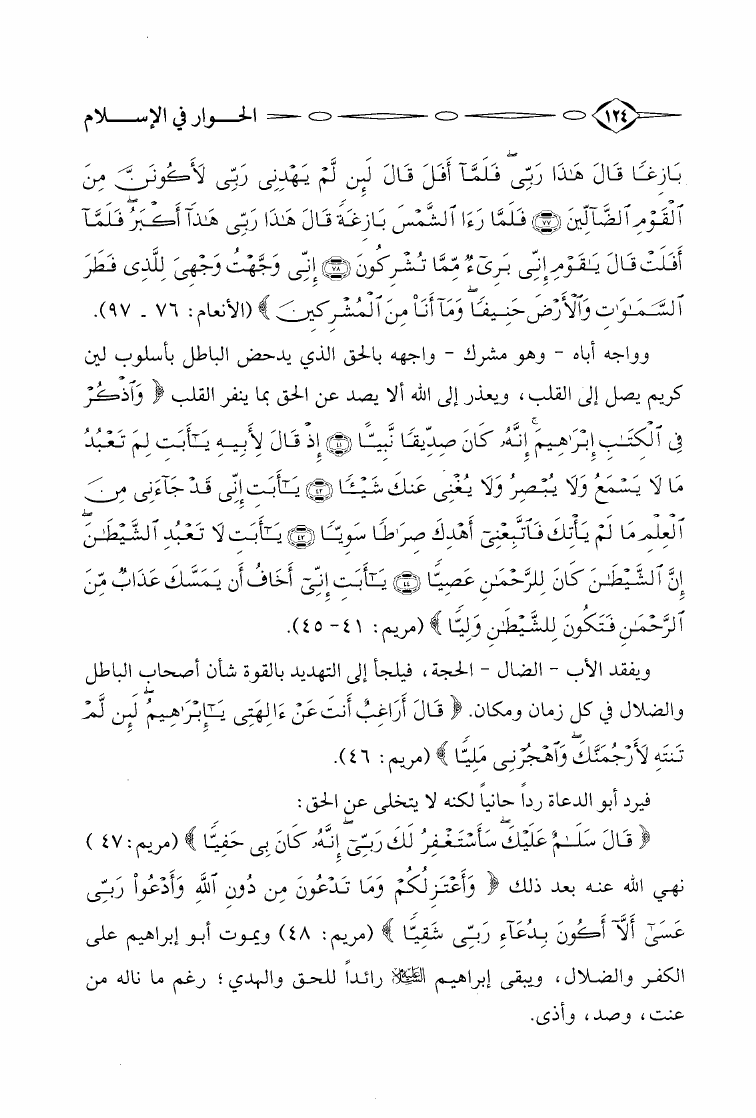 ١٢٤ الحـــوار في الإســـــلام
بَازِغًا قَالَ هَٰذَا رَبِّى ۖ فَلَمَّآ أَفَلَ قَالَ لَئِن لَّمْ يَهْدِنِى رَبِّى لَأَكُونَنَّ مِنَ
ٱلْقَوْمِ ٱلضَّآلِّينَ ٧٧ فَلَمَّا رَءَا ٱلشَّمْسَ بَازِغَةً قَالَ هَٰذَا رَبِّى هَٰذَآ أَكْبَرُ ۖ فَلَمَّآ
أَفَلَتْ قَالَ يَٰقَوْمِ إِنِّى بَرِىٓءٌ مِّمَّا تُشْرِكُونَ ٧٨ إِنِّى وَجَّهْتُ وَجْهِىَ لِلَّذِى فَطَرَ
ٱلسَّمَٰوَٰتِ وَٱلْأَرْضَ حَنِيفًا ۖ وَمَآ أَنَا۠ مِنَ ٱلْمُشْرِكِينَ ﴾ (الأنعام: ٧٦ ـ ٩٧).
وواجه أباه - وهو مشرك - واجهه بالحق الذي يدحض الباطل بأسلوب لين
كريم يصل إلى القلب، ويعذر إلى الله ألا يصد عن الحق بما ينفر القلب ﴿ وَٱذْكُرْ
فِى ٱلْكِتَٰبِ إِبْرَٰهِيمَ ۚ إِنَّهُۥ كَانَ صِدِّيقًا نَّبِيًّا ٤١ إِذْ قَالَ لِأَبِيهِ يَٰٓأَبَتِ لِمَ تَعْبُدُ
مَا لَا يَسْمَعُ وَلَا يُبْصِرُ وَلَا يُغْنِى عَنكَ شَيْـًٔا ٤٢ يَٰٓأَبَتِ إِنِّى قَدْ جَآءَنِى مِنَ
ٱلْعِلْمِ مَا لَمْ يَأْتِكَ فَٱتَّبِعْنِىٓ أَهْدِكَ صِرَٰطًا سَوِيًّا ٤٣ يَٰٓأَبَتِ لَا تَعْبُدِ ٱلشَّيْطَٰنَ ۖ
إِنَّ ٱلشَّيْطَٰنَ كَانَ لِلرَّحْمَٰنِ عَصِيًّا ٤٤ يَٰٓأَبَتِ إِنِّىٓ أَخَافُ أَن يَمَسَّكَ عَذَابٌ مِّنَ
ٱلرَّحْمَٰنِ فَتَكُونَ لِلشَّيْطَٰنِ وَلِيًّا ﴾ (مريم: ٤١- ٤٥).
ويفقد الأب - الضال - الحجة، فيلجأ إلى التهديد بالقوة شأن أصحاب الباطل
والضلال في كل زمان ومكان. ﴿ قَالَ أَرَاغِبٌ أَنتَ عَنْ ءَالِهَتِى يَٰٓإِبْرَٰهِيمُ ۖ لَئِن لَّمْ
تَنتَهِ لَأَرْجُمَنَّكَ ۖ وَٱهْجُرْنِى مَلِيًّا ﴾ (مريم: ٤٦).
فيرد أبو الدعاة رداً حانياً لكنه لا يتخلى عن الحق:
﴿ قَالَ سَلَٰمٌ عَلَيْكَ ۖ سَأَسْتَغْفِرُ لَكَ رَبِّىٓ ۖ إِنَّهُۥ كَانَ بِى حَفِيًّا ﴾ (مريم:٤٧ )
نهي الله عنه بعد ذلك ﴿ وَأَعْتَزِلُكُمْ وَمَا تَدْعُونَ مِن دُونِ ٱللَّهِ وَأَدْعُوا۟ رَبِّى
عَسَىٰٓ أَلَّآ أَكُونَ بِدُعَآءِ رَبِّى شَقِيًّا ﴾ (مريم: ٤٨) ويموت أبو إبراهيم على
الكفر والضلال، ويبقى إبراهيم عليه السلام رائداً للحق والهدي؛ رغم ما ناله من
عنت، وصد، وأذى.